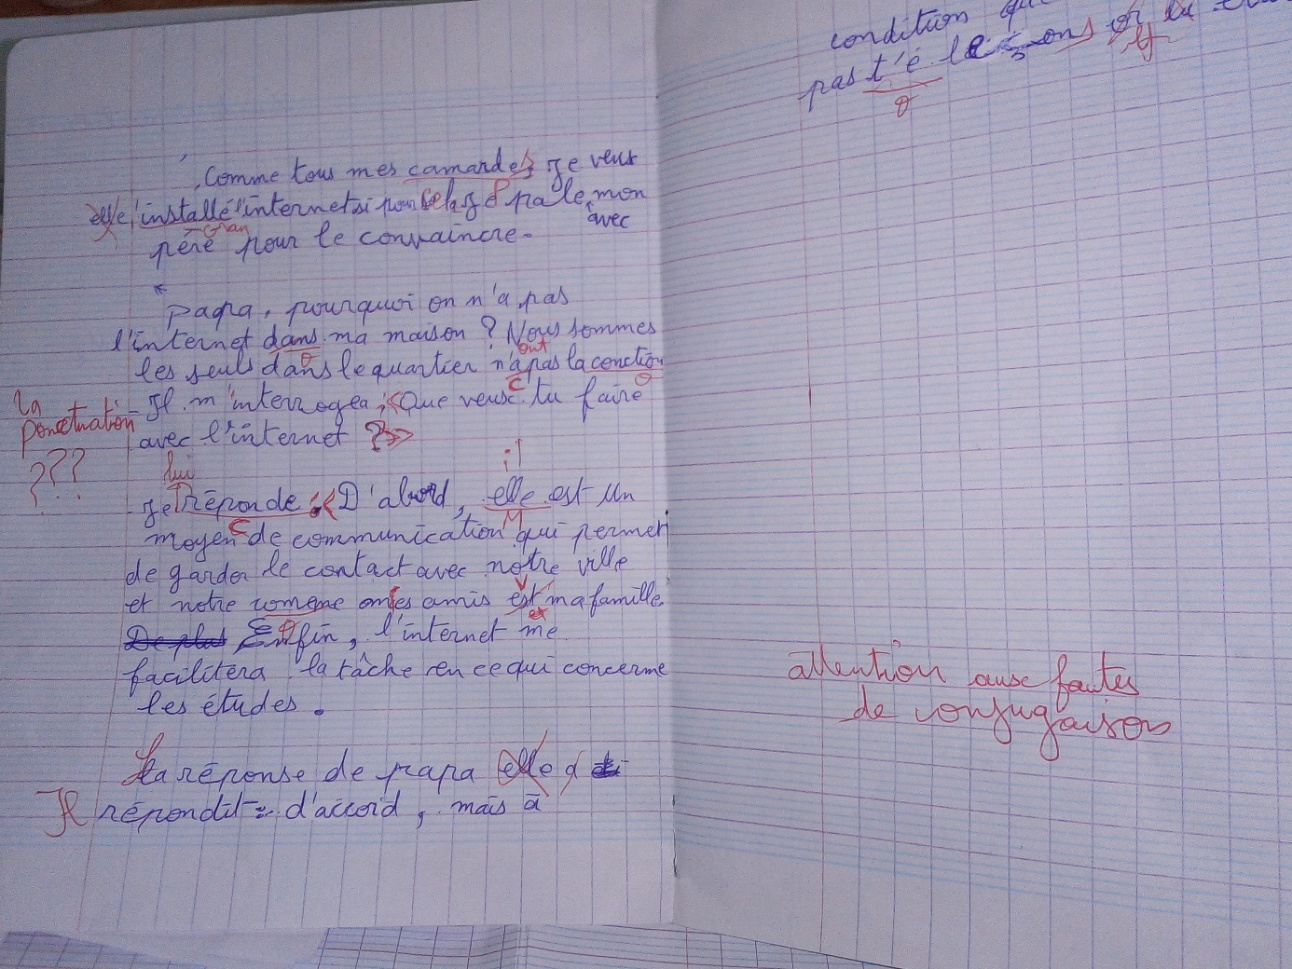 Comme tous mes camardes, je veux
l'installé l'internet si pour cela je pale mon
avec
péré pour le convaincre.
"papa, pourquoi on n'a pas
l'internet dans ma maison ? Nous sommes
les seuls dans le quartier n'a pas la conction
ont
La
ponctuation
???
Il m'interrogea : « Que veux tu faire
avec l'internet ? »
lui
il
Je réponde : « D'abord, elle est un
moyen de communication qui permet
de garder le contact avec notre ville
et notre comeme amis et ma famille.
De plus Enfin, l'internet me
facilitera la tâche en ce qui concerme
les études.
La réponse de papa elle
Il répondit = d'accord, mais à
condition
pas t'é
attention aux fautes
de conjugaison